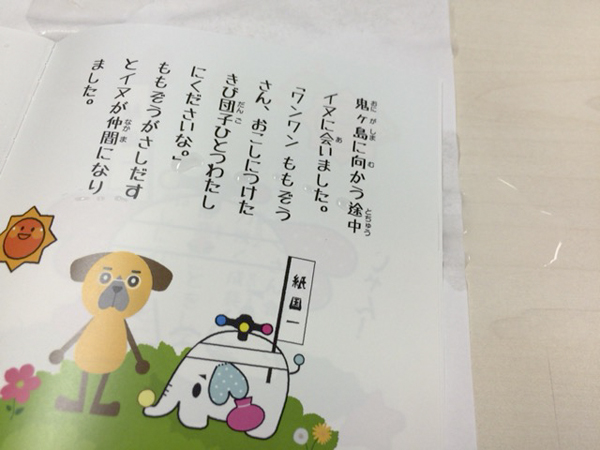 鬼ヶ島に向かう途中
イヌに会いました。
「ワンワン ももぞう
さん、おこしにつけた
きび団子ひとつわたし
にくださいな。」
ももぞうがさしだす
とイヌが仲間になり
ました。
紙国一